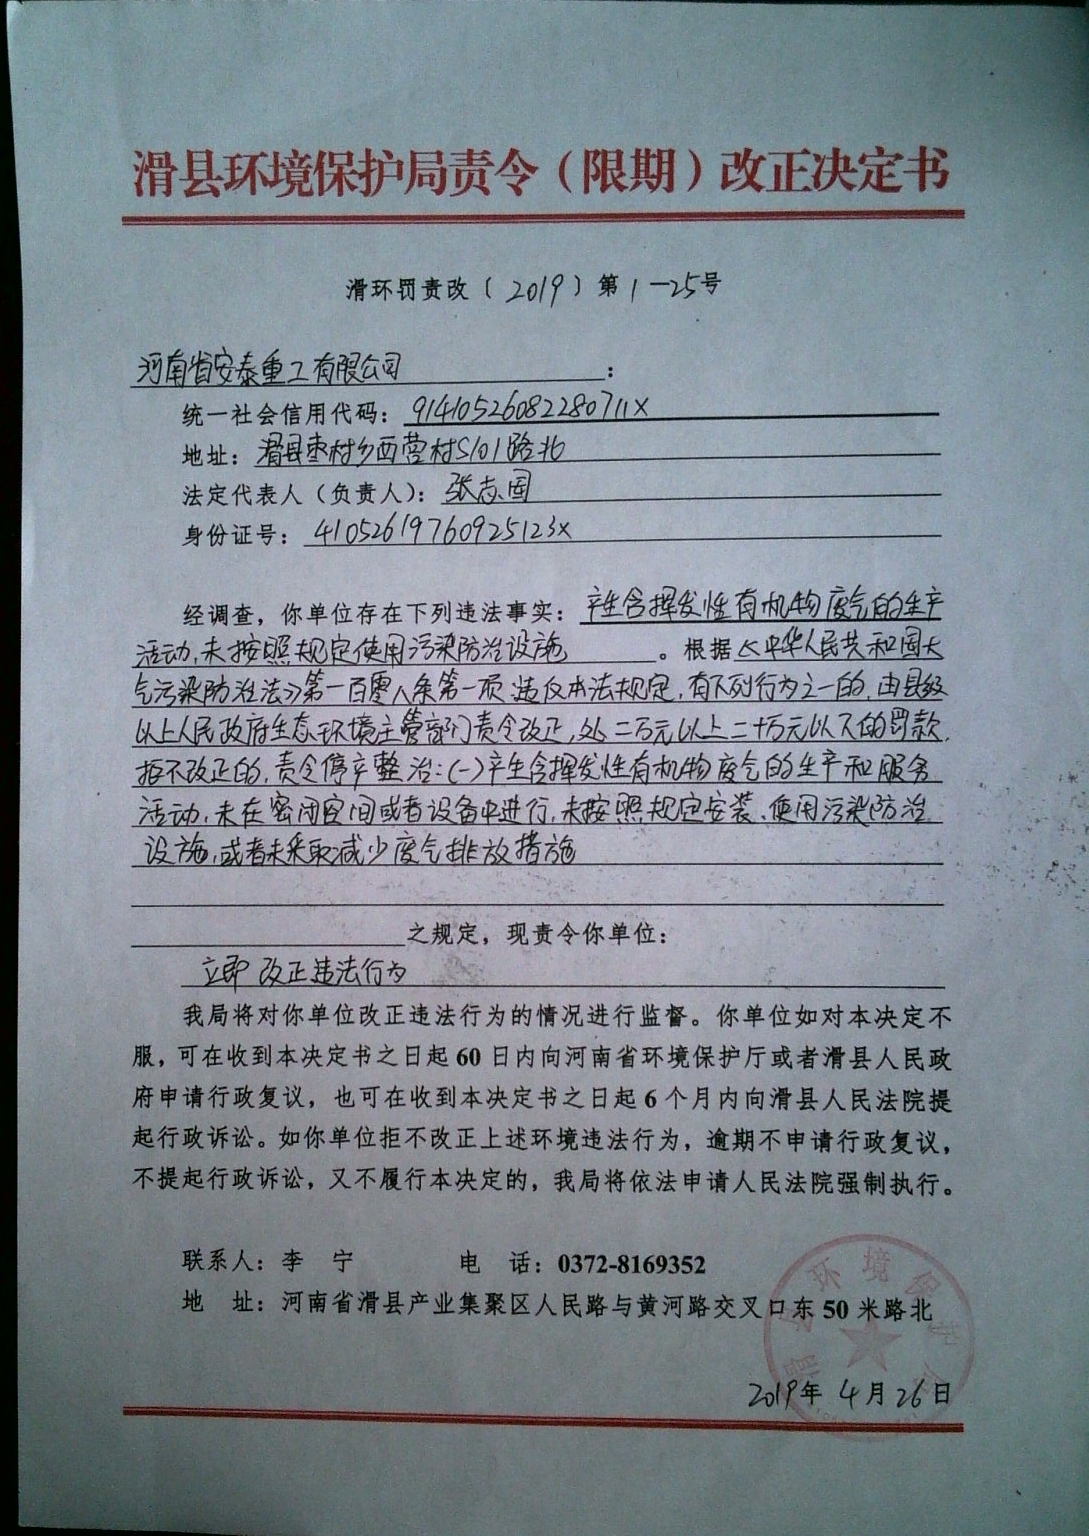 滑县环境保护局责令（限期）改正决定书
滑环罚责改（2019）第1-25号
河南省安泰重工有限公司：
统一社会信用代码：91410526082280711X
地址：滑县枣村乡西营村S101路北
法定代表人（负责人）：张志国
身份证号：41052619760925123X
经调查，你单位存在下列违法事实：产生含挥发性有机物废气的生产
活动，未按照规定使用污染防治设施。根据《中华人民共和国大
气污染防治法》第一百零八条第一项 违反本法规定，有下列行为之一的，由县级
以上人民政府生态环境主管部门责令改正，处二万元以上二十万元以下的罚款，
拒不改正的，责令停产整治：（一）产生含挥发性有机物废气的生产和服务
活动，未在密闭空间或者设备中进行，未按照规定安装、使用污染防治
设施，或者未采取减少废气排放措施
之规定，现责令你单位：
立即改正违法行为
我局将对你单位改正违法行为的情况进行监督。你单位如对本决定不
服，可在收到本决定书之日起60日内向河南省环境保护厅或者滑县人民政
府申请行政复议，也可在收到本决定书之日起6个月内向滑县人民法院提
起行政诉讼。如你单位拒不改正上述环境违法行为，逾期不申请行政复议，
不提起行政诉讼，又不履行本决定的，我局将依法申请人民法院强制执行。
联系人：李 宁 电 话：0372-8169352
地 址：河南省滑县产业集聚区人民路与黄河路交叉口东50米路北
滑县环境保护局
2019年4月26日